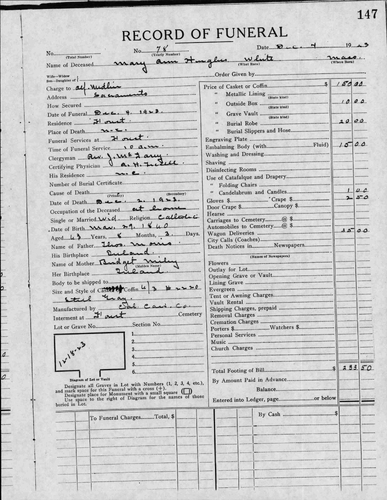 147
RECORD OF FUNERAL
No. No. 78 Date Dec. 4 1923
(Total Number) (Yearly Number)
Name of Deceased Mary Ann Hughes White
(What Race)
Wife—Widow
Son—Daughter of Order Given by
Charge to
Address Sacramento
How Secured
Date of Funeral Dec. 4 1923.
Residence
Place of Death
Funeral Services at
Time of Funeral Service 10 a.m.
Clergyman Rev. J.
Certifying Physician
His Residence
Number of Burial Certificate
Cause of Death
(Secondary)
Date of Death Dec. 2, 1923.
Occupation of the Deceased at home
Single or Married Wid Religion Catholic
Date of Birth Mar. 29. 1840
Aged 83 Years, 8 Months, 3 Days.
Name of Father Thos. Morris
His Birthplace Ireland
Name of Mother Bridget
Her Birthplace Ireland
Body to be shipped to
Size and Style of Casket
or Coffin
Manufactured by
Interment at Cemetery
Lot or Grave No. Section No.
12-18-23
Diagram of Lot or Vault
Designate all Graves in Lot with Numbers (1, 2, 3, 4, etc.), and mark space for this Funeral with a cross (+).
Designate place for Monument with a small square
Use space to the right of Diagram for the names of those buried in Lot.
Price of Casket or Coffin $ 150 00
" Metallic Lining
(State Kind)
" Outside Box 10 00
(State Kind)
" Grave Vault
(State Kind)
" Burial Robe 20 00
(State Kind)
" Burial Slippers and Hose
Engraving Plate
Embalming Body (with Fluid) 15 00
Washing and Dressing
Shaving
Disinfecting Rooms
Use of Catafalque and Drapery
" Folding Chairs
" Candelabrum and Candles 1 00
Gloves $ Crape $ 2 50
Door Crape $ Canopy $
Hearse
Carriages to Cemetery @ $
Automobiles to Cemetery @ $
Wagon Deliveries 35 00
City Calls (Coaches)
Death Notices in Newspapers
(Names of Newspapers)
Flowers
Outlay for Lot
Opening Grave or Vault
Lining Grave
Evergreen
Tent or Awning
Vault Rental
Shipping Charges, prepaid
Removal Charges
Cremation Charges
Porters $ Watchers $
Personal Services
Music
Church Charges
Total Footing of Bill $ 233 50
By Amount Paid in Advance
Balance
Entered into Ledger, page or below.
To Funeral Charges Total, $
By Cash $